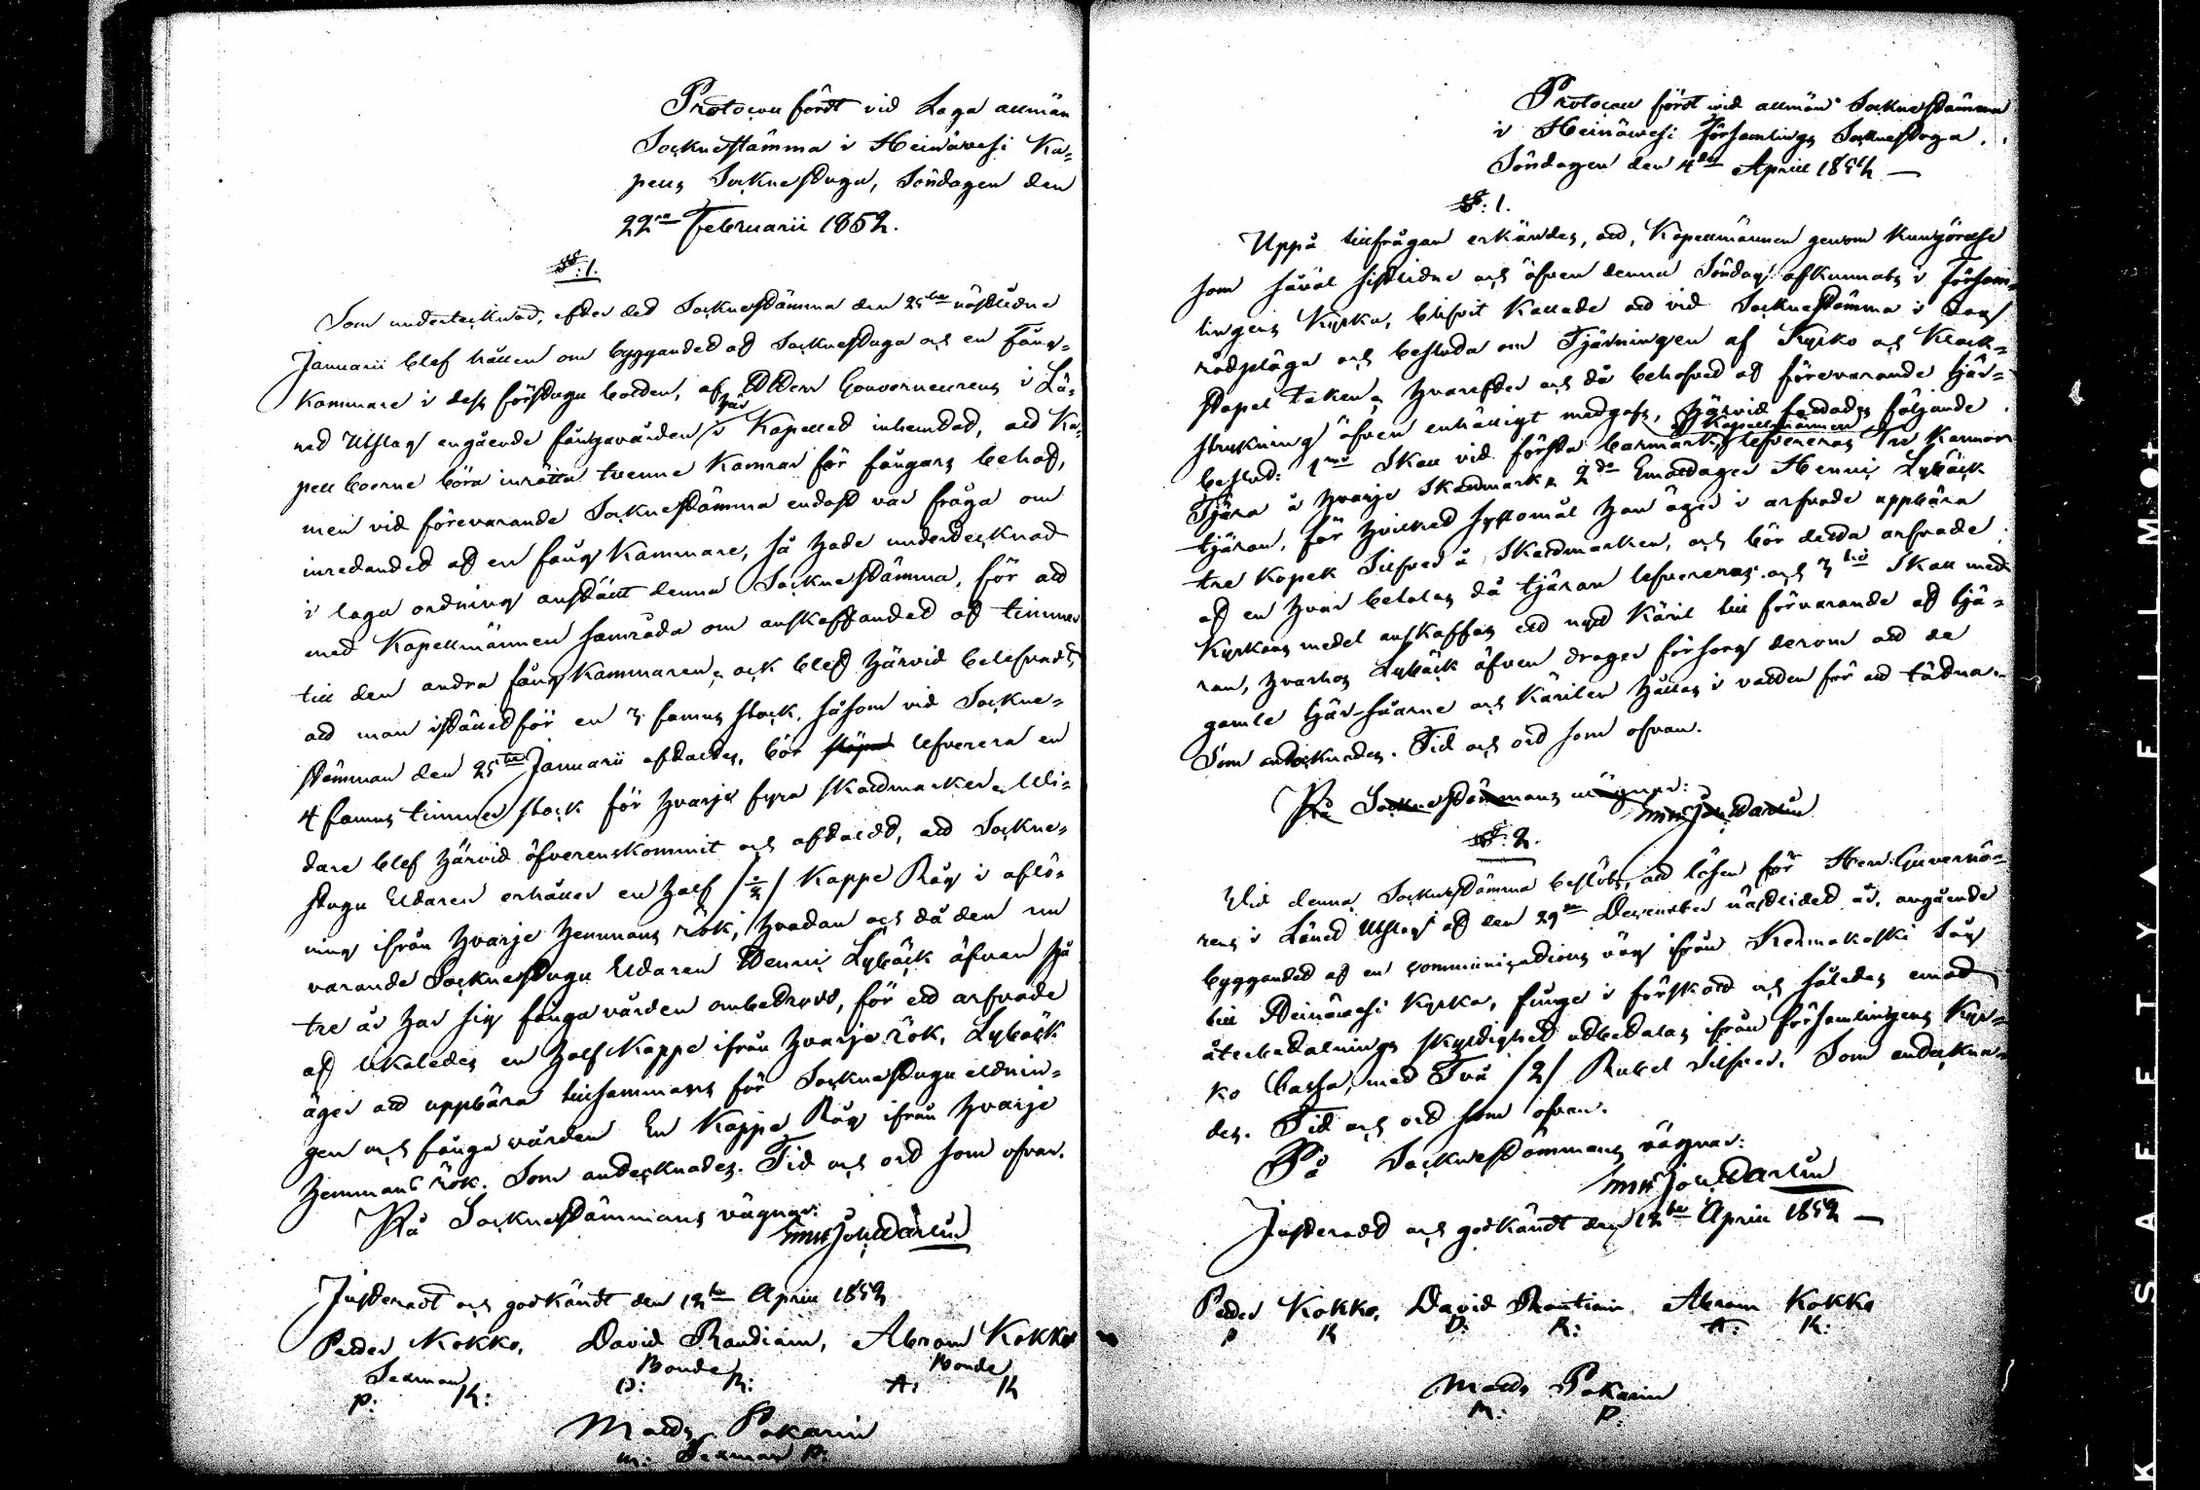 Protocoll fördt vid Laga allmän
Socknestämma i Heinävesi Ka-
pells Socknestuga, Söndagen den
22ra Februarii 1852.
§: 1.
Som undertecknad, efter det Socknestämma den 25te nästledne
Januarii blef hållen om byggandet af Socknestuga och en Fång-
kammare i dess förstugu botten, af Herr Gouverneurens i Lä-
net Utslag angående fångavården här i Kapellet inhemtat, att Ka-
pell boerne böra inrätta tvenne Kamrar för fångars behof,
men vid förevarande Socknestämma endast var fråga om
inredandet af en fång Kammare, så hade undertecknad
i laga ordning anstäldt denna Socknestämma, för att
med Kapellmännen samråda om anskaffandet af timmer
till den andra fång Kammaren, ock blef härvid belefvadt,
att man istället för en 3 famns stock, såsom vid Sockne-
stämman den 25te Januarii aftaltes, bör lefverera en
4 famns timmer stock för hvarje fyra skattmarker. Vi-
dare blef härvid öfverenskommit och aftaldt, att Sockne-
stugu Eldaren erhåller en half /½/ Kappe Råg i aflö-
ning ifrån hvarje hemmans rök, hvadan och då den nu
varande Socknestugu Eldaren Henric Lybäck äfven på
tre år har sig fångavården ombetrodd, för ett arfvode
af likaledes en half Kappe ifrån hvarje rök, Lybäck
äger att uppbära tillsammans för Socknestugu eldnin-
gen och fångavården En Kappe Råg ifrån hvarje
hemmans rök. Som antecknades. Tid och ort som ofvan.
På Socknestämmans vägnar:
Justeradt och godkändt den 12te April 1852
Petter Kokko, David Rautiain, Abram Kokko
Sexman Bonde Bonde
P: K: D: R: A: K
Matts Pakarin
M: Sexman P:
Protocoll fördt vid allmän Socknestämma
i Heinäwesi Församlings Socknestuga,
Söndagen den 4de April 1852 —
§: 1.
Uppå tillfrågan erkändes, att, Kapellmännen genom kungörelse
som såväl sistledne och äfven denna Söndag afkunnats i Försam-
lingens Kyrka, blifvit kallade att vid Socknestämma i dag
rådpläga och besluta om Tjärningen af Kyrko och Klock-
stapel taken, hvarefter och då behofvet af förevarande tjär-
strykning äfven enhälligt medgafs, härvid fattades följande
beslut: 1mo Skall vid första barmark af Kapellmännen lefvereras Tre Kannor
Tjära å hvarje Skattmark, 2do Emottager Henric Lybäck
tjäran, för hvilket sysslomål han äger i arfvode uppbära
tre Kopek Silfver å Skattmarken, och bör detta arfvode
af en hvar betalas då tjäran lefvereras och 3tio Skall med
Kyrkans medel anskaffas ett nytt Käril till förvarande af tjä-
ran, hvarhos Lybäck äfven drager försorg derom att de
gamle tjär-såarne och Kärilen hållas i vatten för att tätna.
Som antecknades. Tid och ort som ofvan.
På Socknestämmans vägnar:
§: 2.
Vid denna Socknestämma beslöts, att lösen för Herr Guvernö-
rens i Länet Utslag af den 29de December nästledet år, angående
byggandet af en communications väg ifrån Kermakoski Såg
till Heinäwesi Kyrka, finge i förskott och således emot
återbetalnings skyldighet utbetalas ifrån Församlingens Kyr-
ko Cassa, med Två /2/ Rubel Silfver. Som antecknа-
des. Tid och ort som ofvan.
På Socknestämmans vägnar:
Justeradt och godkändt den 12te April 1852 —
Petter Kokko, David Rautiain, Abram Kokko
P K D: R: A: K:
Matts Pakarin
M: P:
K SAFETY▲FILM●+